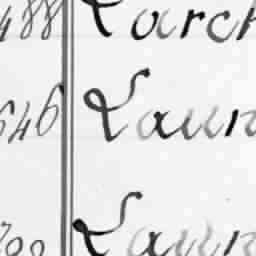 488 Larch
646 Laun
700 Laun